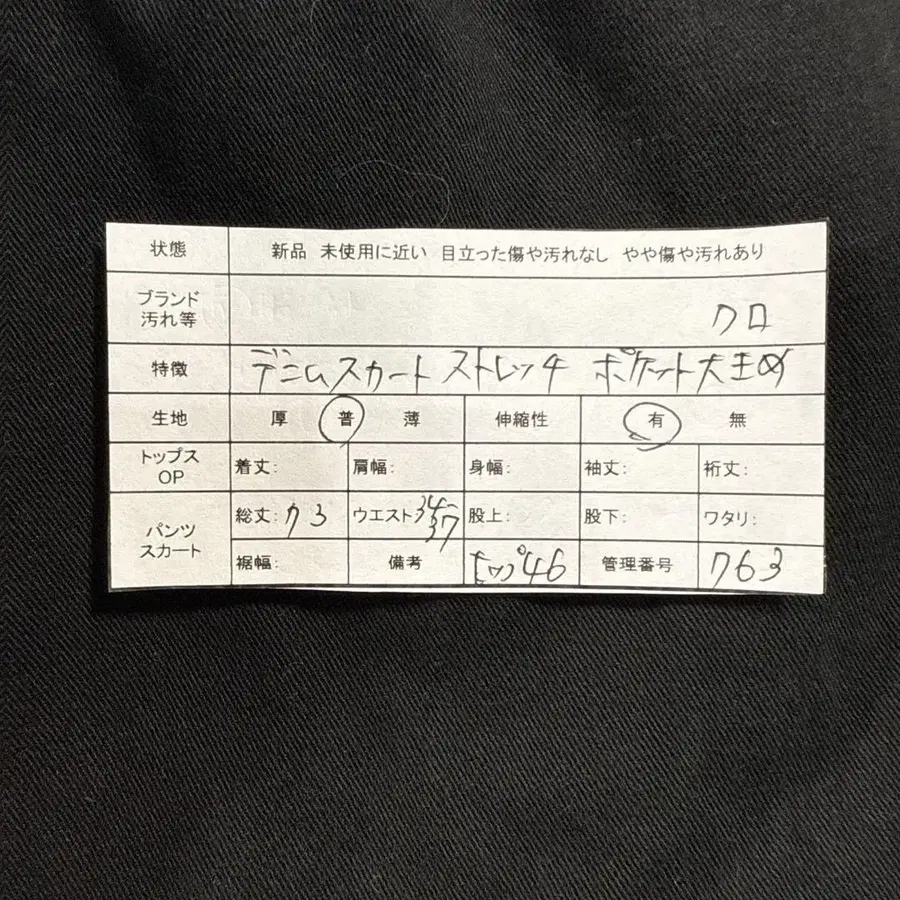 状態 新品 未使用に近い 目立った傷や汚れなし やや傷や汚れあり
ブランド
汚れ等 クロ
特徴 デニムスカート ストレッチ ポケット大きめ
生地 厚 普 薄 伸縮性 有 無
トップス
OP 着丈: 肩幅: 身幅: 袖丈: 裄丈:
パンツ
スカート 総丈: 73 ウエスト 34~37 股上: 股下: ワタリ:
裾幅: 備考 ヒップ46 管理番号 763